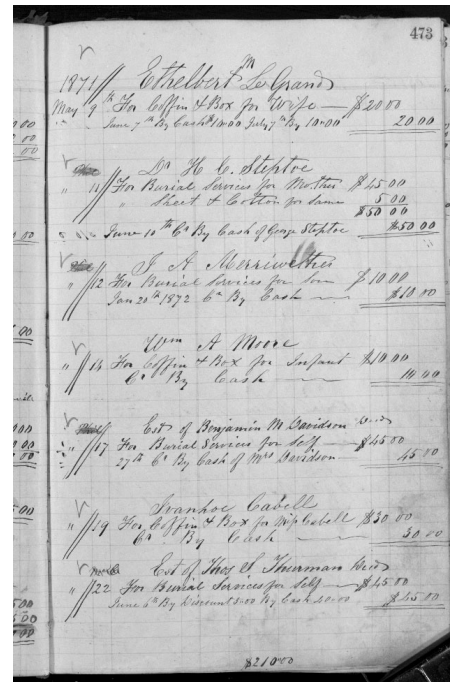 473
1871 Ethelbert M LeGrand
May 9th For Coffin & Box for Wife — $20.00
June 7th By Cash $10.00 July 7th By 10.00 20.00
Dr H. C. Steptoe
" 11 For Burial Services for Mother $45.00
" Sheet & Cotton for same 5.00
$50.00
June 10th Cr By Cash of George Steptoe $50.00
J A Merriwether
" 12 For Burial Services for Son $10.00
Jan 20th 1872 Cr By Cash $10.00
Wm A Moore
" 14 For Coffin & Box for Infant $10.00
Cr By Cash 10.00
Est of Benjamin M Davidson Decd
" 17 For Burial Services for Self — $45.00
27th Cr By Cash of Mrs Davidson — 45.00
Ivanhoe Cabell
" 19 For Coffin & Box for Miss Cabell $30.00
Cr By Cash 30.00
Est of Thos S Thurman Decd
" 22 For Burial Services for Self — $45.00
June 6th By Discount 5.00 By Cash 40.00 $45.00
$210.00